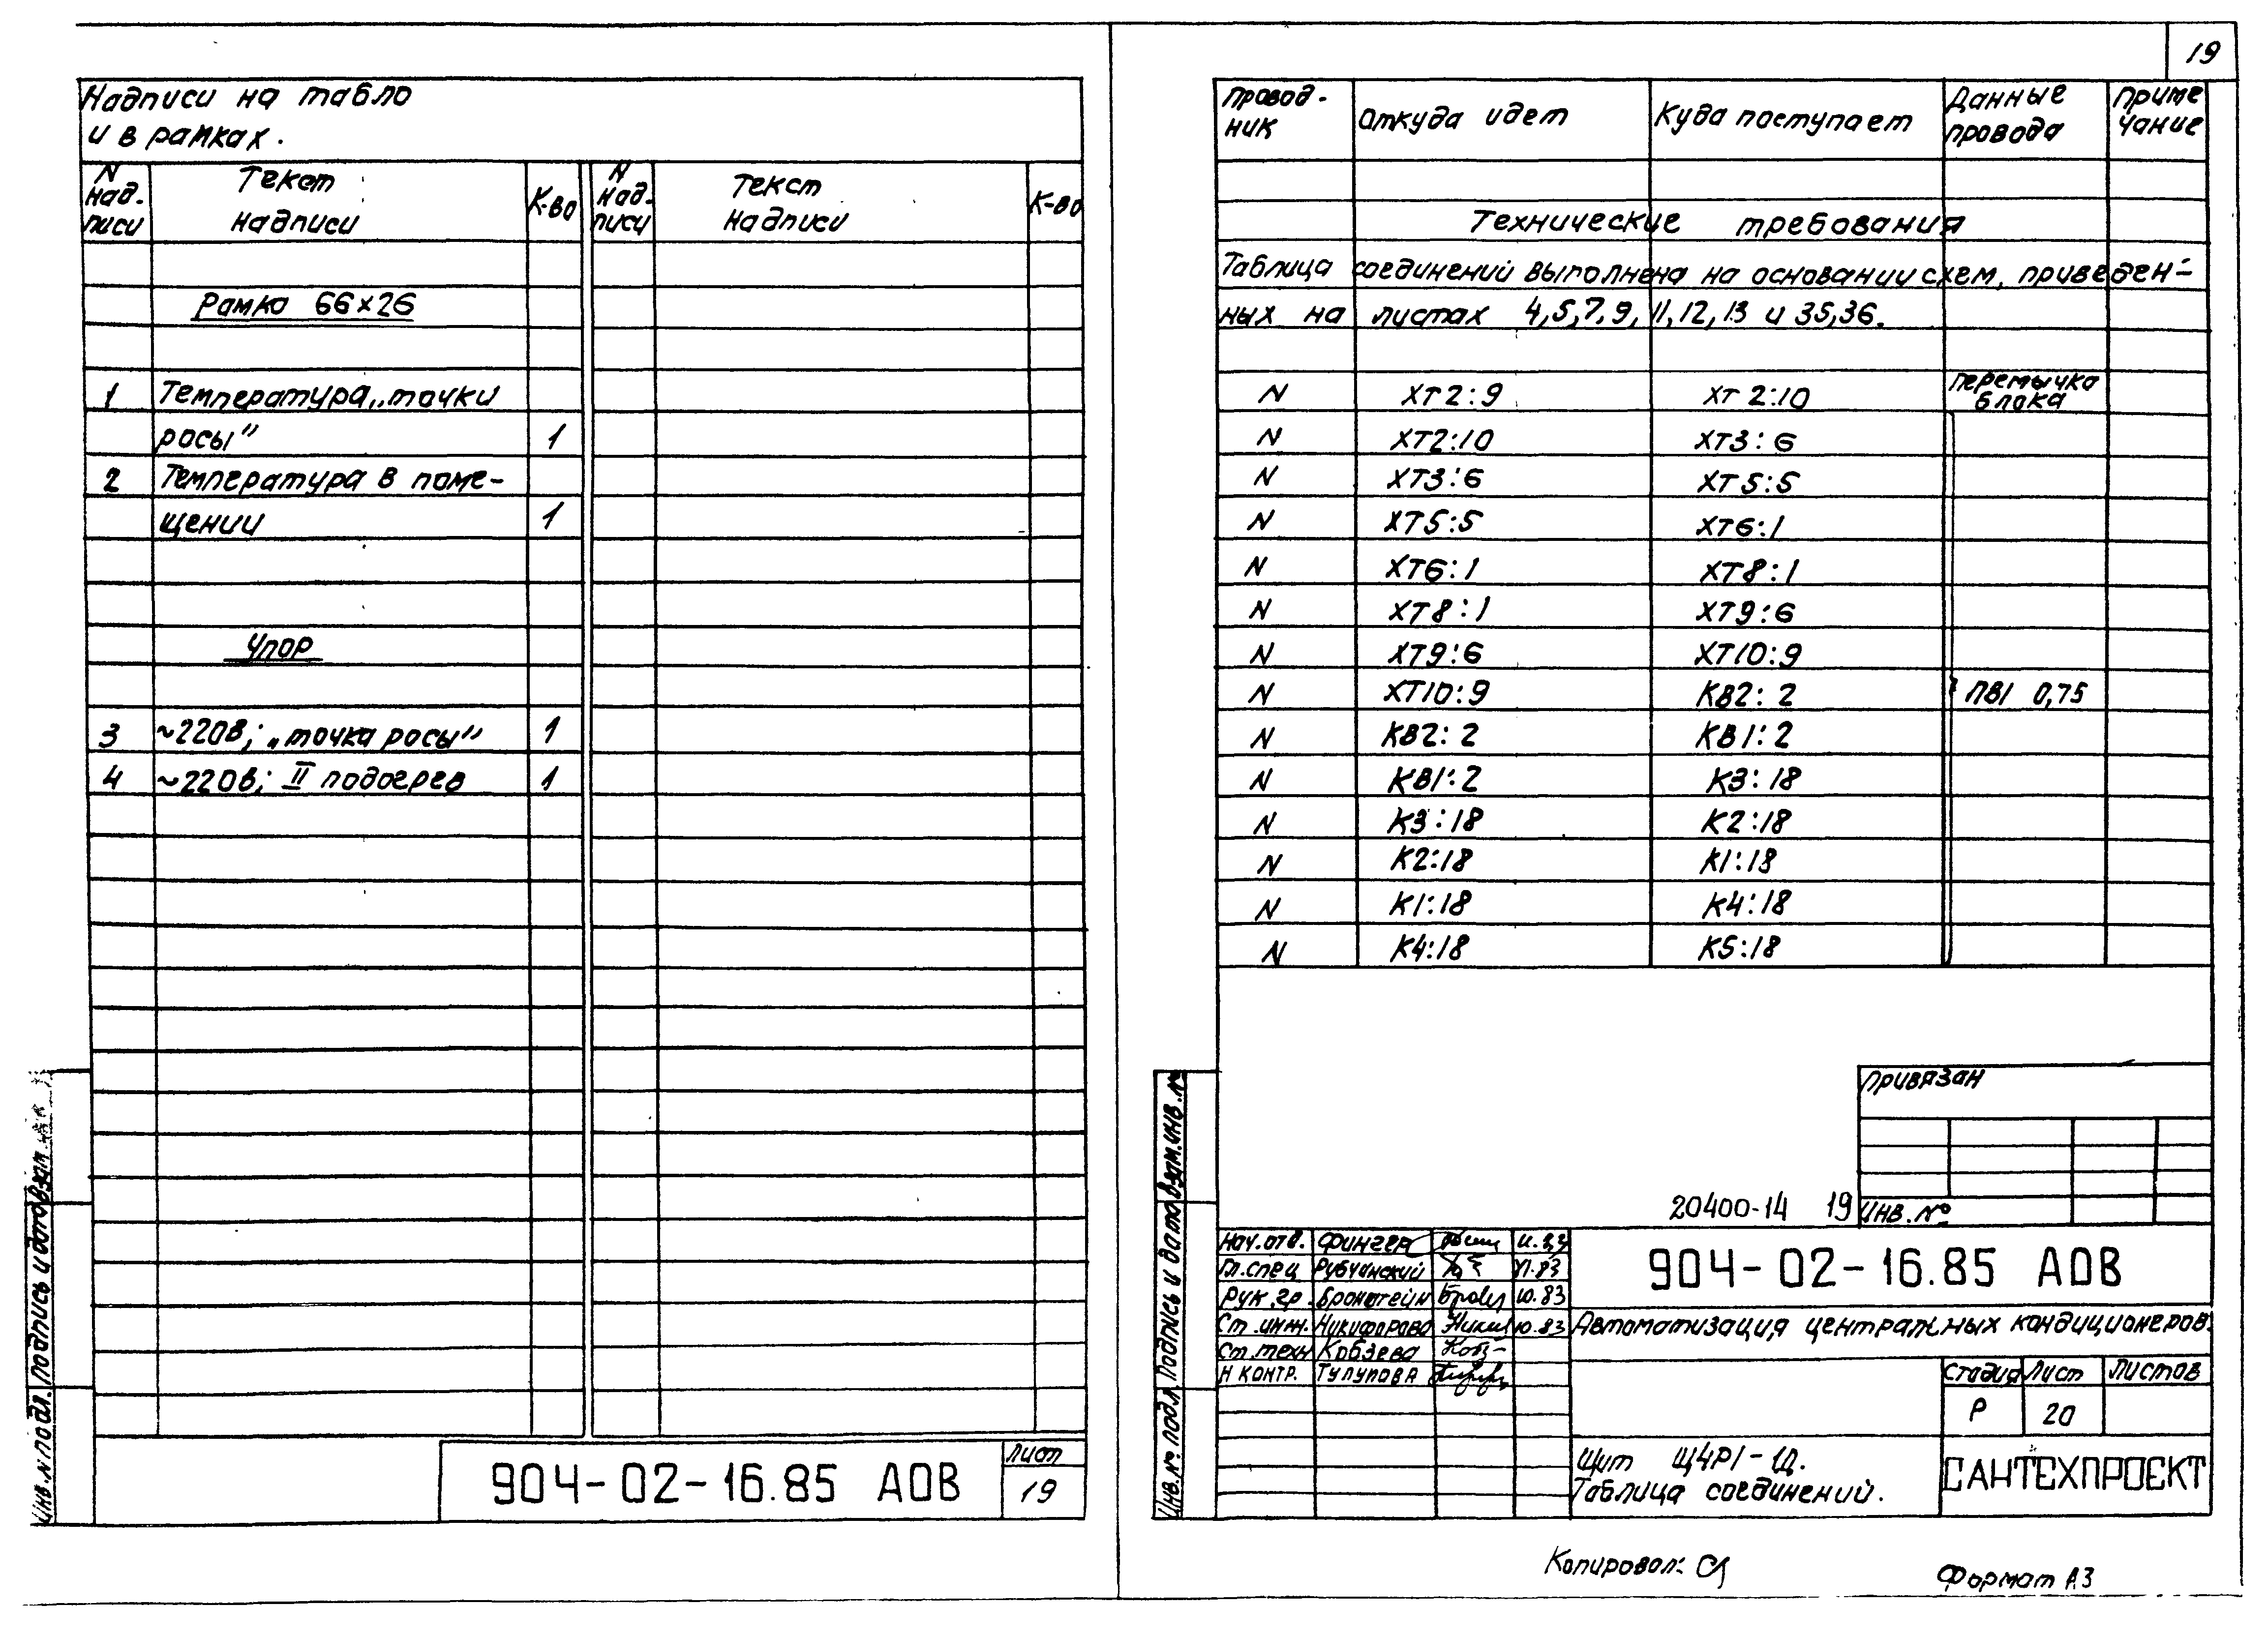 19
Надписи на табло
и в рамках.
N надписи Текст надписи К-во N надписи Текст надписи К-во
Рамка 66×26
1 Температура „точки
росы" 1
2 Температура в поме-
щении 1
Упор
3 ~220В; „точка росы" 1
4 ~220В; II подогрев 1
904-02-16.85 АОВ
Лист
19
Инв. N подл. Подпись и дата Взам.
Провод-
ник Откуда идет Куда поступает Данные
провода Приме
чание
Технические требования
Таблица соединений выполнена на основании схем, приведен-
ных на листах 4,5,7,9,11,12,13 и 35,36.
N ХТ2:9 ХТ2:10 перемычка
блока
N ХТ2:10 ХТ3:6
N ХТ3:6 ХТ5:5
N ХТ5:5 ХТ6:1
N ХТ6:1 ХТ8:1
N ХТ8:1 ХТ9:6
N ХТ9:6 ХТ10:9
N ХТ10:9 КВ2:2 ПВ1 0,75
N КВ2:2 КВ1:2
N КВ1:2 К3:18
N К3:18 К2:18
N К2:18 К1:18
N К1:18 К4:18
N К4:18 К5:18
Привязан
Инв. №
20400-14 19
Нач. отв. Фингер
Гл. спец Рубчинский
Рук. гр. Бронштейн 10.83
Ст. инж. Никифорова 10.83
Ст. техн Кобзева
Н контр. Тулупова
904-02-16.85 АОВ
Автоматизация центральных кондиционеров.
Стадия Лист Листов
Р 20
Щит Щ4Р1-1Д.
Таблица соединений.
САНТЕХПРОЕКТ
Инв. № подл. Подпись и дата Взам. инв. №
Копировал:
Формат А3